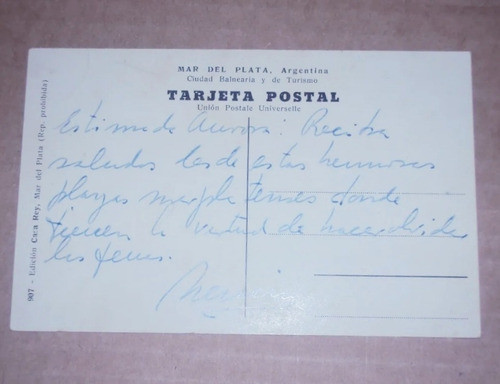 MAR DEL PLATA, Argentina
Ciudad Balnearia y de Turismo
TARJETA POSTAL
Unión Postale Universelle
Estimada Aurora: Reciba
saludos desde estas hermosas
playas marplatenses donde
tienen la virtud de hacer olvidar
las penas.
907 - Edición Casa Rey, Mar del Plata (Rep. prohibida)